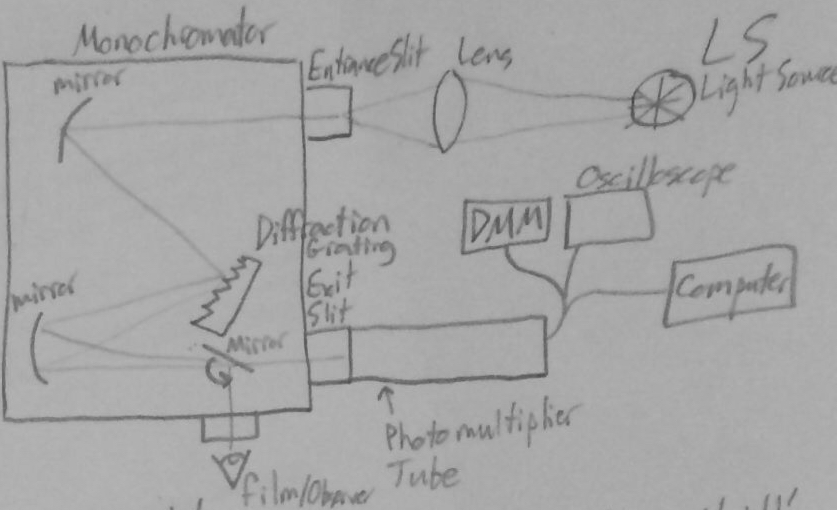 Monochromator
mirror
Entrance Slit
Lens
LS
Light Source
Oscilloscope
DMM
Diffraction
Grating
Exit
Slit
mirror
Computer
Mirror
Photomultiplier
Tube
film/Observer